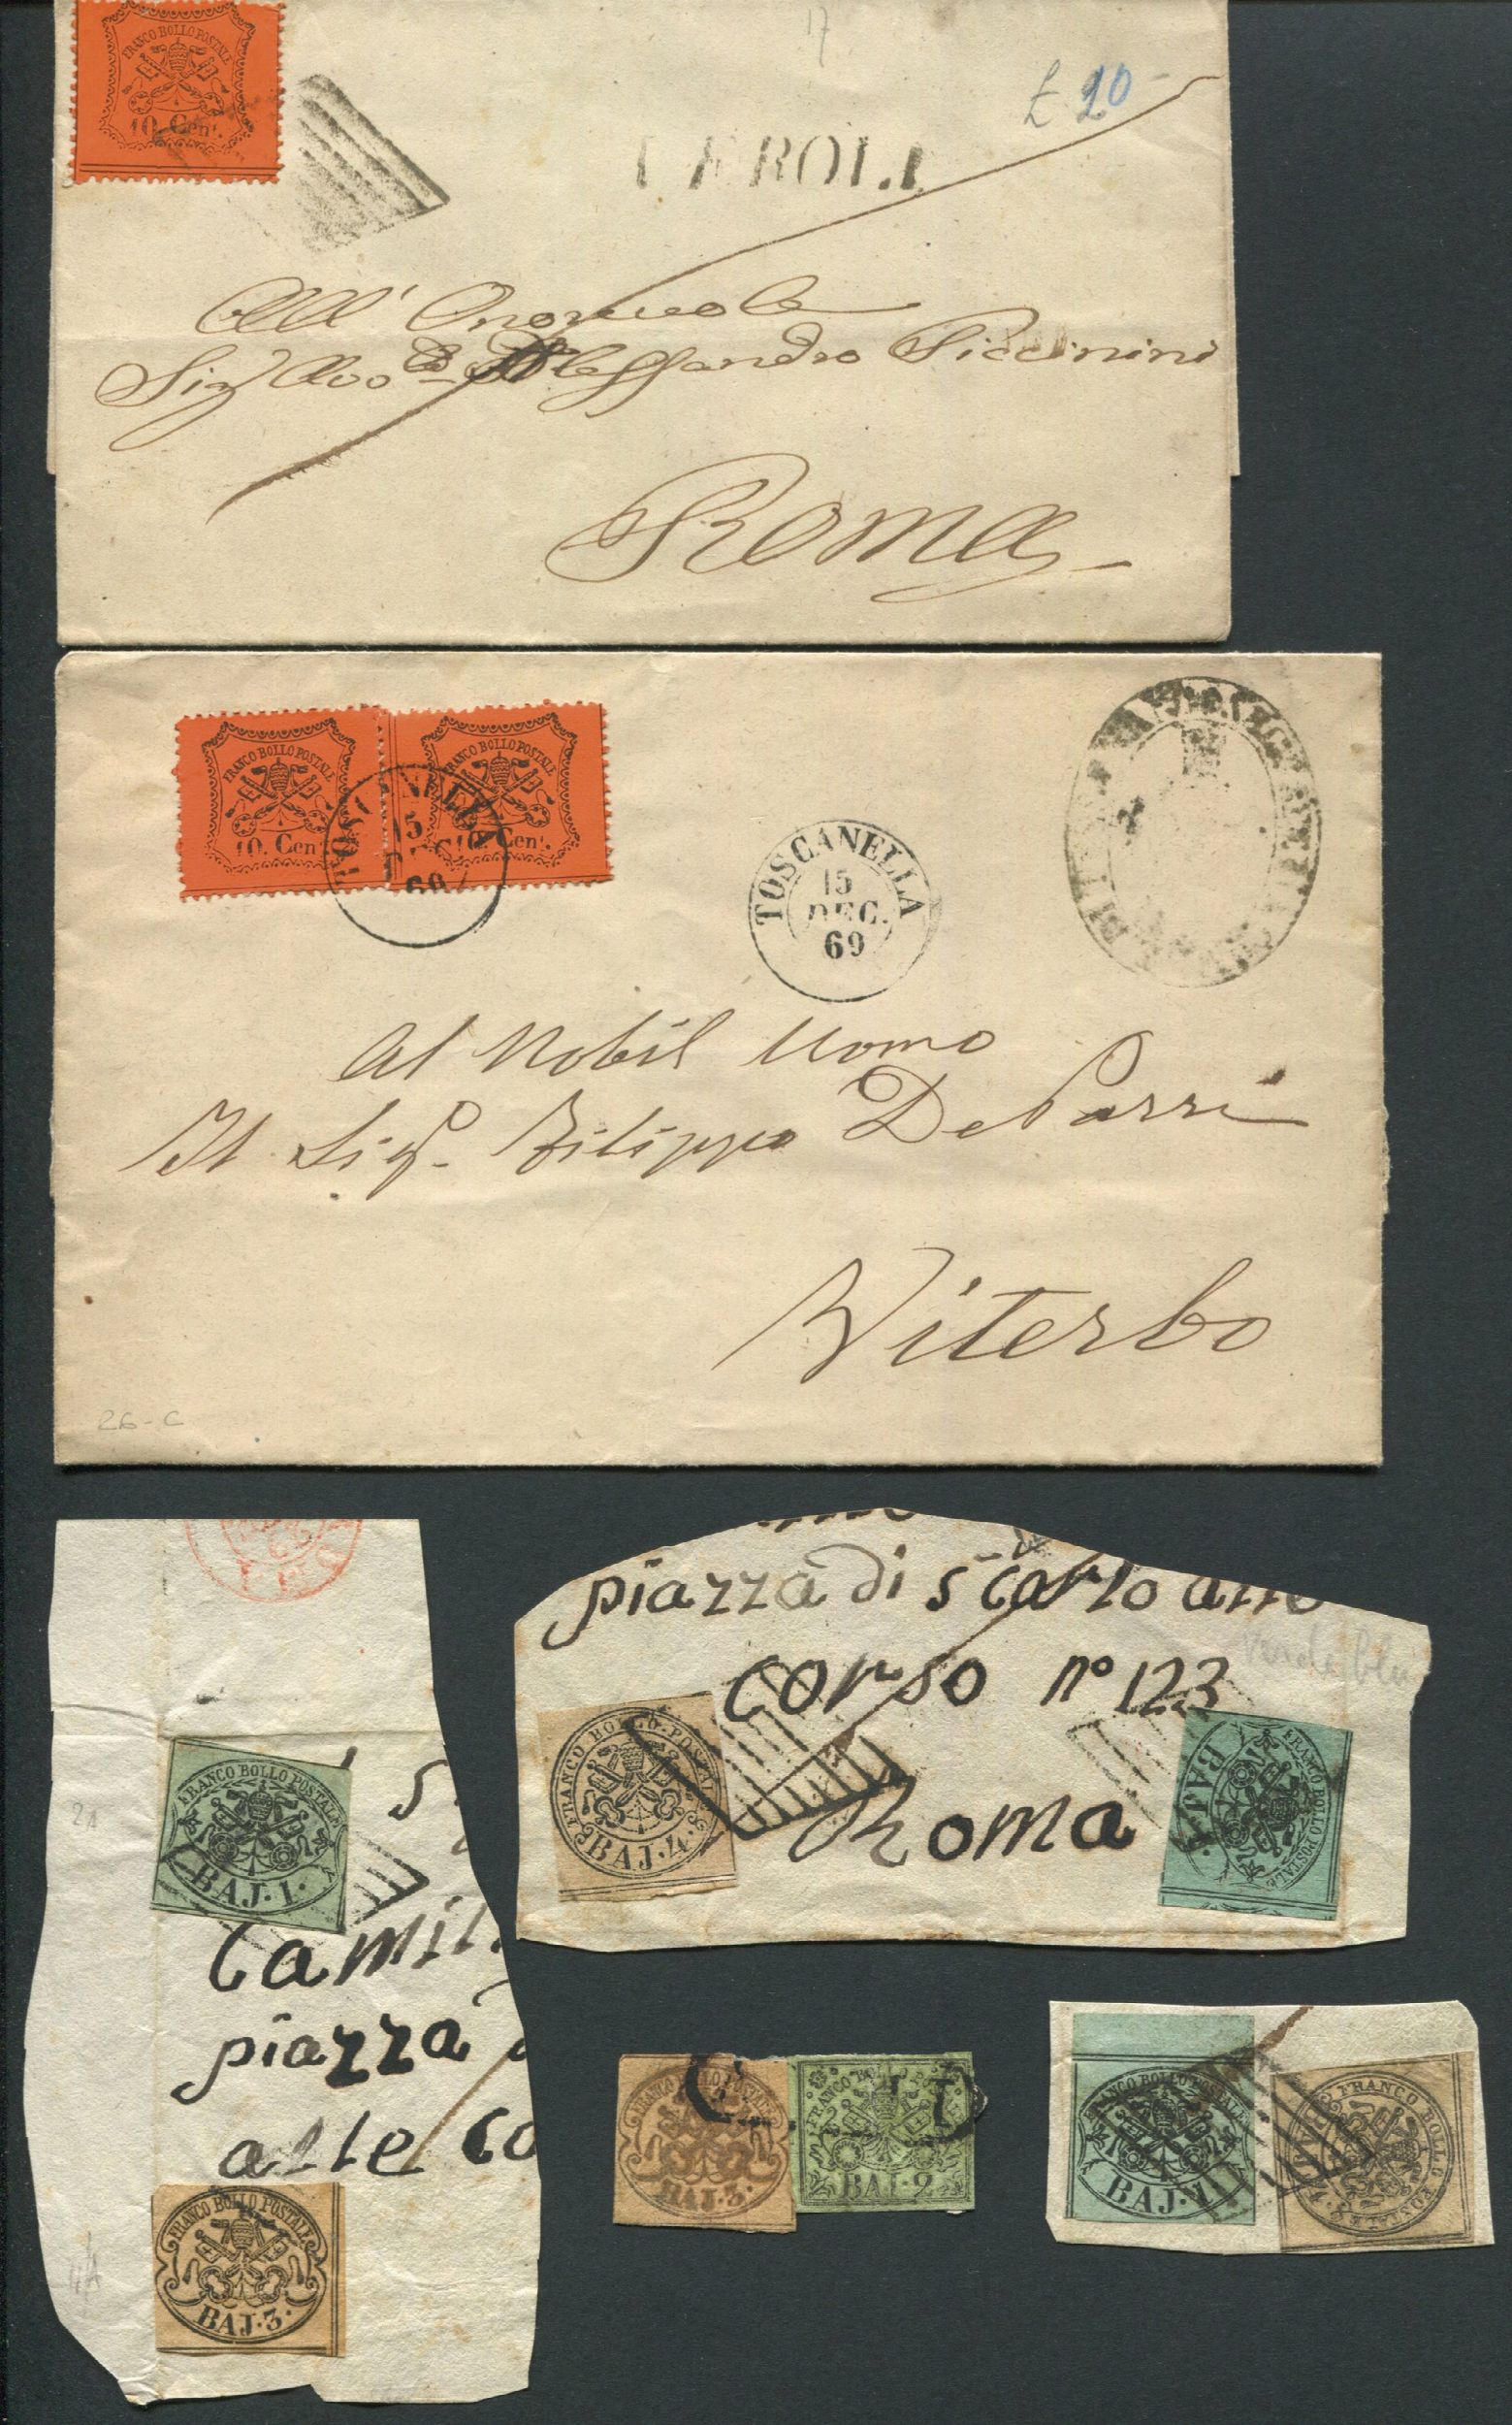 FRANCO BOLLO POSTALE
10. Cent.
17
£ 20
VEROLI
All' Onorevole
Sig Avvo Alessandro Piccinini
Roma
FRANCO BOLLO POSTALE
10. Cent.
FRANCO BOLLO POSTALE
10. Cent.
TOSCANELLA
15
DEC.
69
TOSCANELLA
15
DEC.
69
Al Nobil Uomo
Il Sig. Filippo De Parri
Viterbo
26-C
piazza di s Carlo alle
corso nº 123
Roma
FRANCO BOLLO POSTALE
BAJ. 4.
FRANCO BOLLO POSTALE
BAJ. 1.
2A
FRANCO BOLLO POSTALE
BAJ. 1.
S
Camil
piazza
alle co
4A
FRANCO BOLLO POSTALE
BAJ. 3.
FRANCO BOLLO POSTALE
BAJ. 3.
FRANCO BOLLO POSTALE
BAJ. 2
FRANCO BOLLO POSTALE
BAJ. 1.
FRANCO BOLLO POSTALE